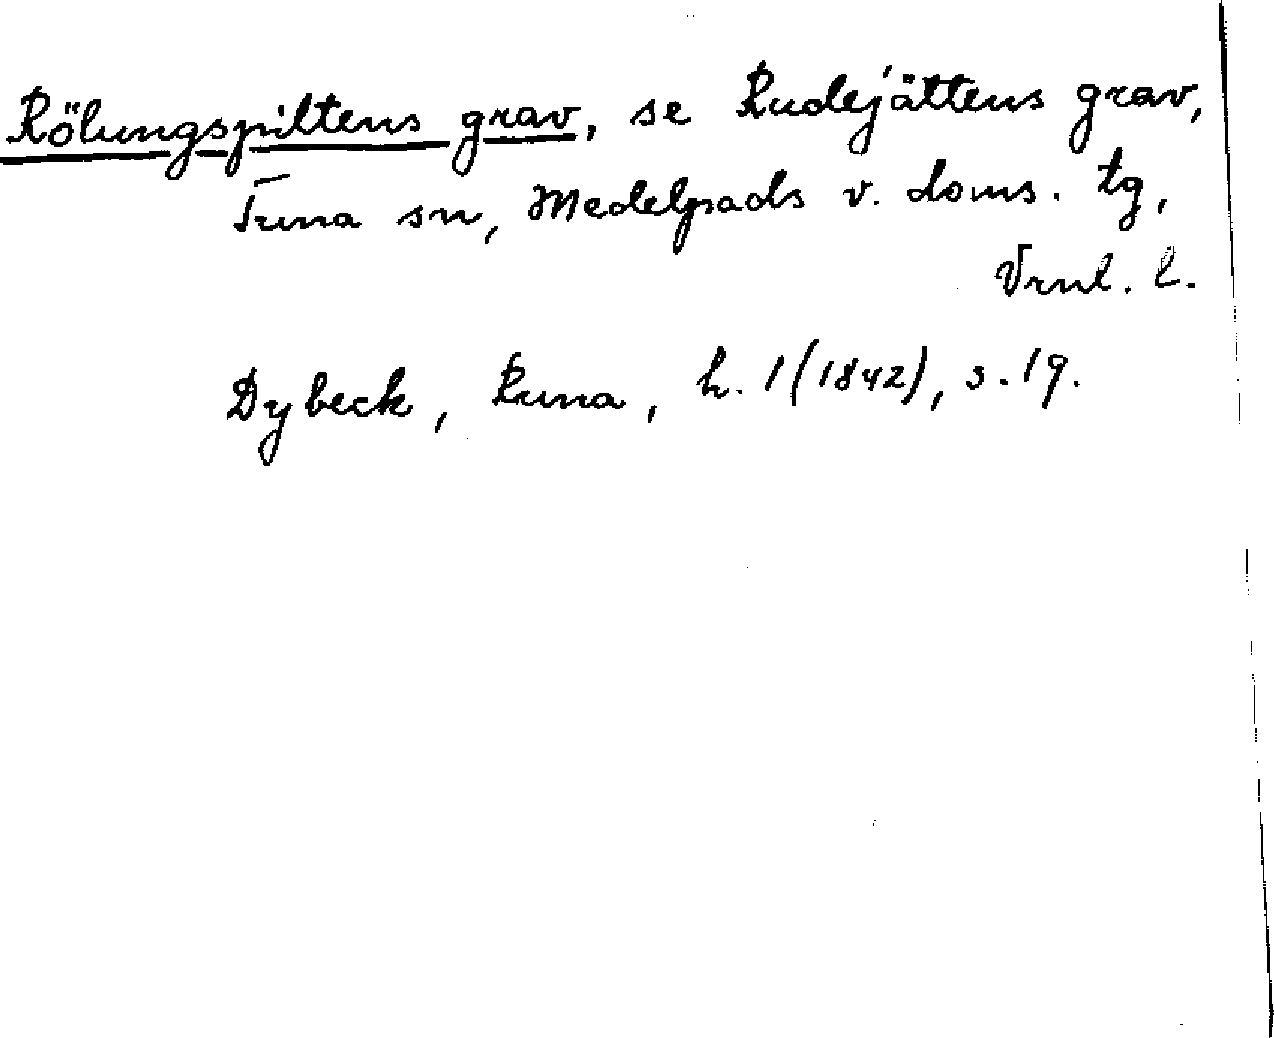 Rölungspiltens grav, se Rudejättens grav,
Tuna sn, Medelpads v. doms. tg,
Vrnl. l.
Dybeck, Runa, h. 1 (1842), s. 19.